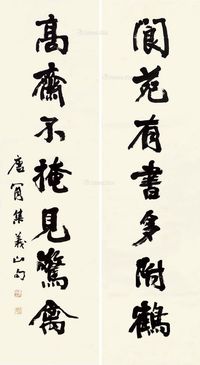 閬苑有書多附鶴
高齋不掩見驚禽
唐肎集義山句